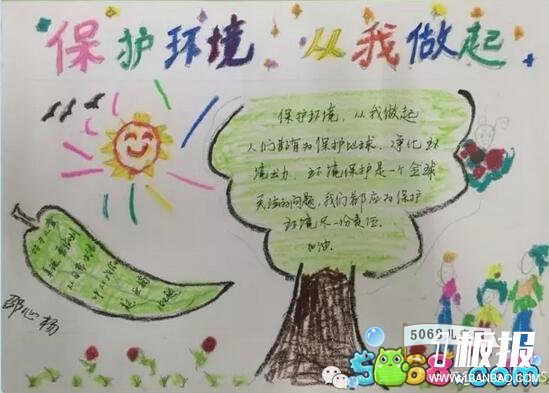 保护环境 从我做起
保护环境，从我做起
人们都有为保护地球，净化环
境出力，环境保护是一个全球
关注的问题，我们都应为保护
环境尽一份责任。
加油
邵心杨
5068儿童
板报
5068.com
WWW.1BANBAO.COM